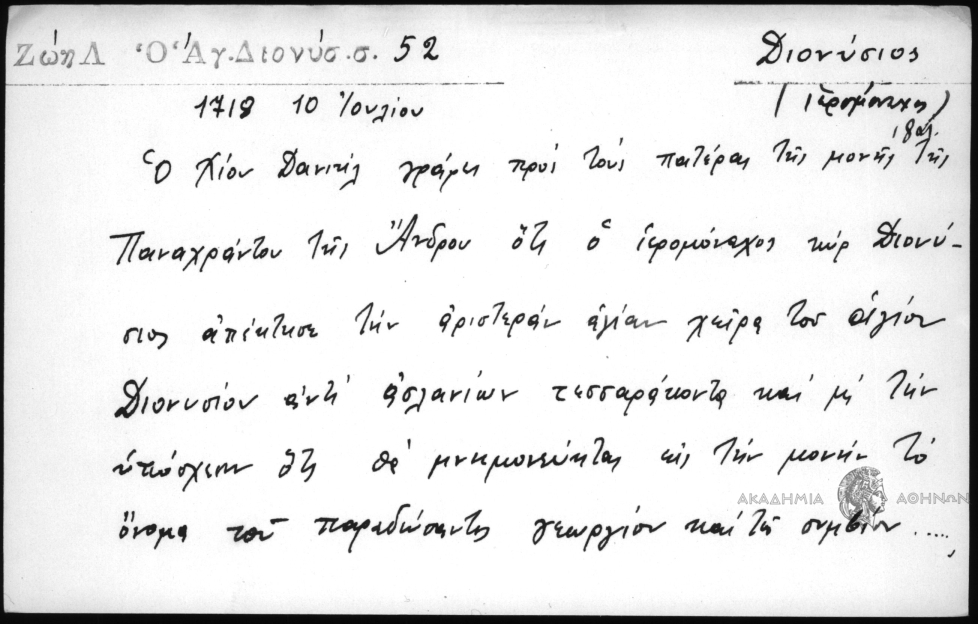 Ζώη Λ Ὁ Ἁγ. Διονύσ. σ. 52
Διονύσιος
(ἱερομόναχος)
1718 10 Ἰουλίου
Ὁ Χίου Δανιήλ γράφει πρός τούς πατέρας τῆς μονῆς τῆς
Παναχράντου τῆς Ἄνδρου ὅτι ὁ ἱερομόναχος κύρ Διονύ-
σιος ἀπέκτησε τήν ἀριστεράν ἁγίαν χεῖρα τοῦ ἁγίου
Διονυσίου ἀντί ἀσλανίων τεσσαράκοντα καί μέ τήν
ὑπόσχεσιν ὅτι θά μνημονεύηται εἰς τήν μονήν τό
ὄνομα τοῦ παραδώσαντος Γεωργίου καί τῆς συμβίου .....
ΑΚΑΔΗΜΙΑ ΑΘΗΝΩΝ